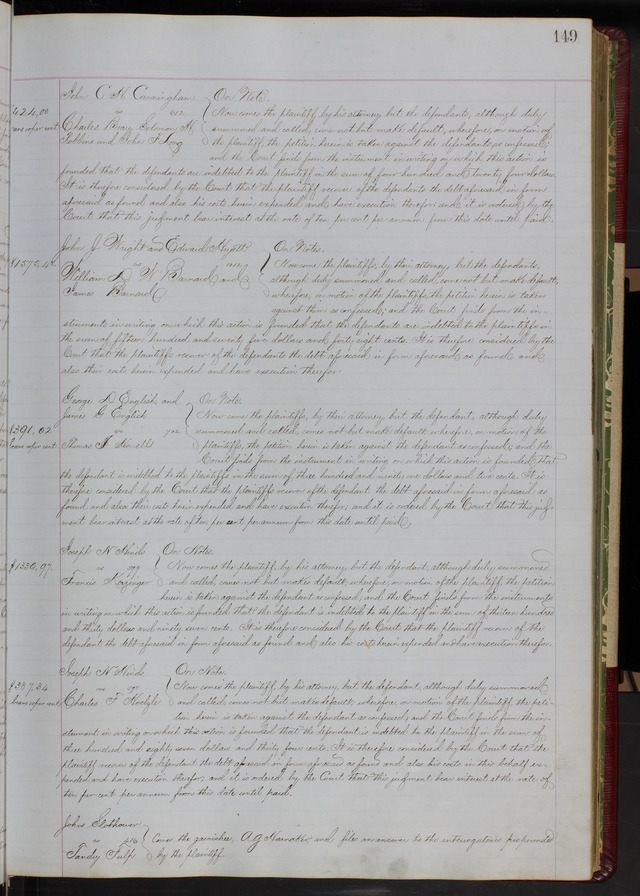 149
John C. H. Cunningham
vs
Charles Bracy Solomon H.
Robbins and John F. Long
On Note.
424,00
Now comes the plaintiff, by his attorney but the defendants, although duly
summoned and called, come not but make default, wherefore, on motion of
the plaintiff, the petition herein is taken against the defendants, as confessed;
and the Court finds from the instrument in writing on which this action is
founded that the defendants are indebted to the plaintiff in the sum of four hundred and twenty four dollars.
It is therefore considered by the Court that the plaintiff recover of the defendants the debt aforesaid in form
aforesaid as found and also his costs herein expended and have execution therefor and it is ordered by the
Court that this judgment bear interest at the rate of ten per cent per annum from this date until paid.
John J. Wright and Edward Hyatt
vs
William D. W. Barnard and
James Barnard
On Notes.
$1575.48
Now come the plaintiffs, by their attorney, but the defendants,
although duly summoned and called, come not but make default,
wherefore, on motion of the plaintiffs, the petition herein is taken
against them as confessed; and the Court finds from the in-
struments in writing on which this action is founded that the defendants are indebted to the plaintiffs in
the sum of fifteen hundred and seventy five dollars and forty eight cents. It is therefore considered by the
Court that the plaintiffs recover of the defendants the debt aforesaid in form aforesaid as found and
also their costs herein expended and have execution therefor.
George D. English and
James G. English
vs
Thomas J.
On Note.
$391,02
Now come the plaintiffs, by their attorney, but the defendant, although duly
summoned and called, comes not but makes default wherefore, on motion of the
plaintiffs, the petition herein is taken against the defendant as confessed; and the
Court finds from the instrument in writing on which this action is founded, that
the defendant is indebted to the plaintiffs in the sum of three hundred and ninety one dollars and two cents. It is
therefore considered by the Court that the plaintiffs recover of the defendant the debt aforesaid in form aforesaid as
found, and also their costs herein expended and have execution therefor; and it is ordered by the Court that this judg-
ment bear interest at the rate of ten per cent per annum from this date until paid.
Joseph N.
vs
Francis
On Notes.
$1330,97.
Now comes the plaintiff, by his attorney, but the defendant, although duly summoned
and called, comes not but makes default; wherefore, on motion of the plaintiff, the petition
herein is taken against the defendant as confessed; and the Court finds from the instruments
in writing on which this action is founded that the defendant is indebted to the plaintiff in the sum of thirteen hundred
and thirty dollars and ninety seven cents. It is therefore considered by the Court that the plaintiff recover of the
defendant the debt aforesaid in form aforesaid as found and also his costs herein expended and have execution therefor.
Joseph N.
vs
Charles F.
On Note.
$387,34
Now comes the plaintiff, by his attorney, but the defendant, although duly summoned
and called, comes not but makes default wherefore, on motion of the plaintiff, the peti-
tion herein is taken against the defendant as confessed; and the Court finds from the in-
strument in writing on which this action is founded that the defendant is indebted to the plaintiff in the sum of
three hundred and eighty seven dollars and thirty four cents. It is therefore considered by the Court that the
plaintiff recover of the defendant the debt aforesaid in form aforesaid as found and also his costs in this behalf ex-
pended and have execution therefor; and it is ordered by the Court that this judgment bear interest at the rate of
ten per cent per annum from this date until paid.
John Slothower
vs
Tandy Fulp
Comes the garnishee, A. G. and files an answer to the interrogatories propounded
by the plaintiff.